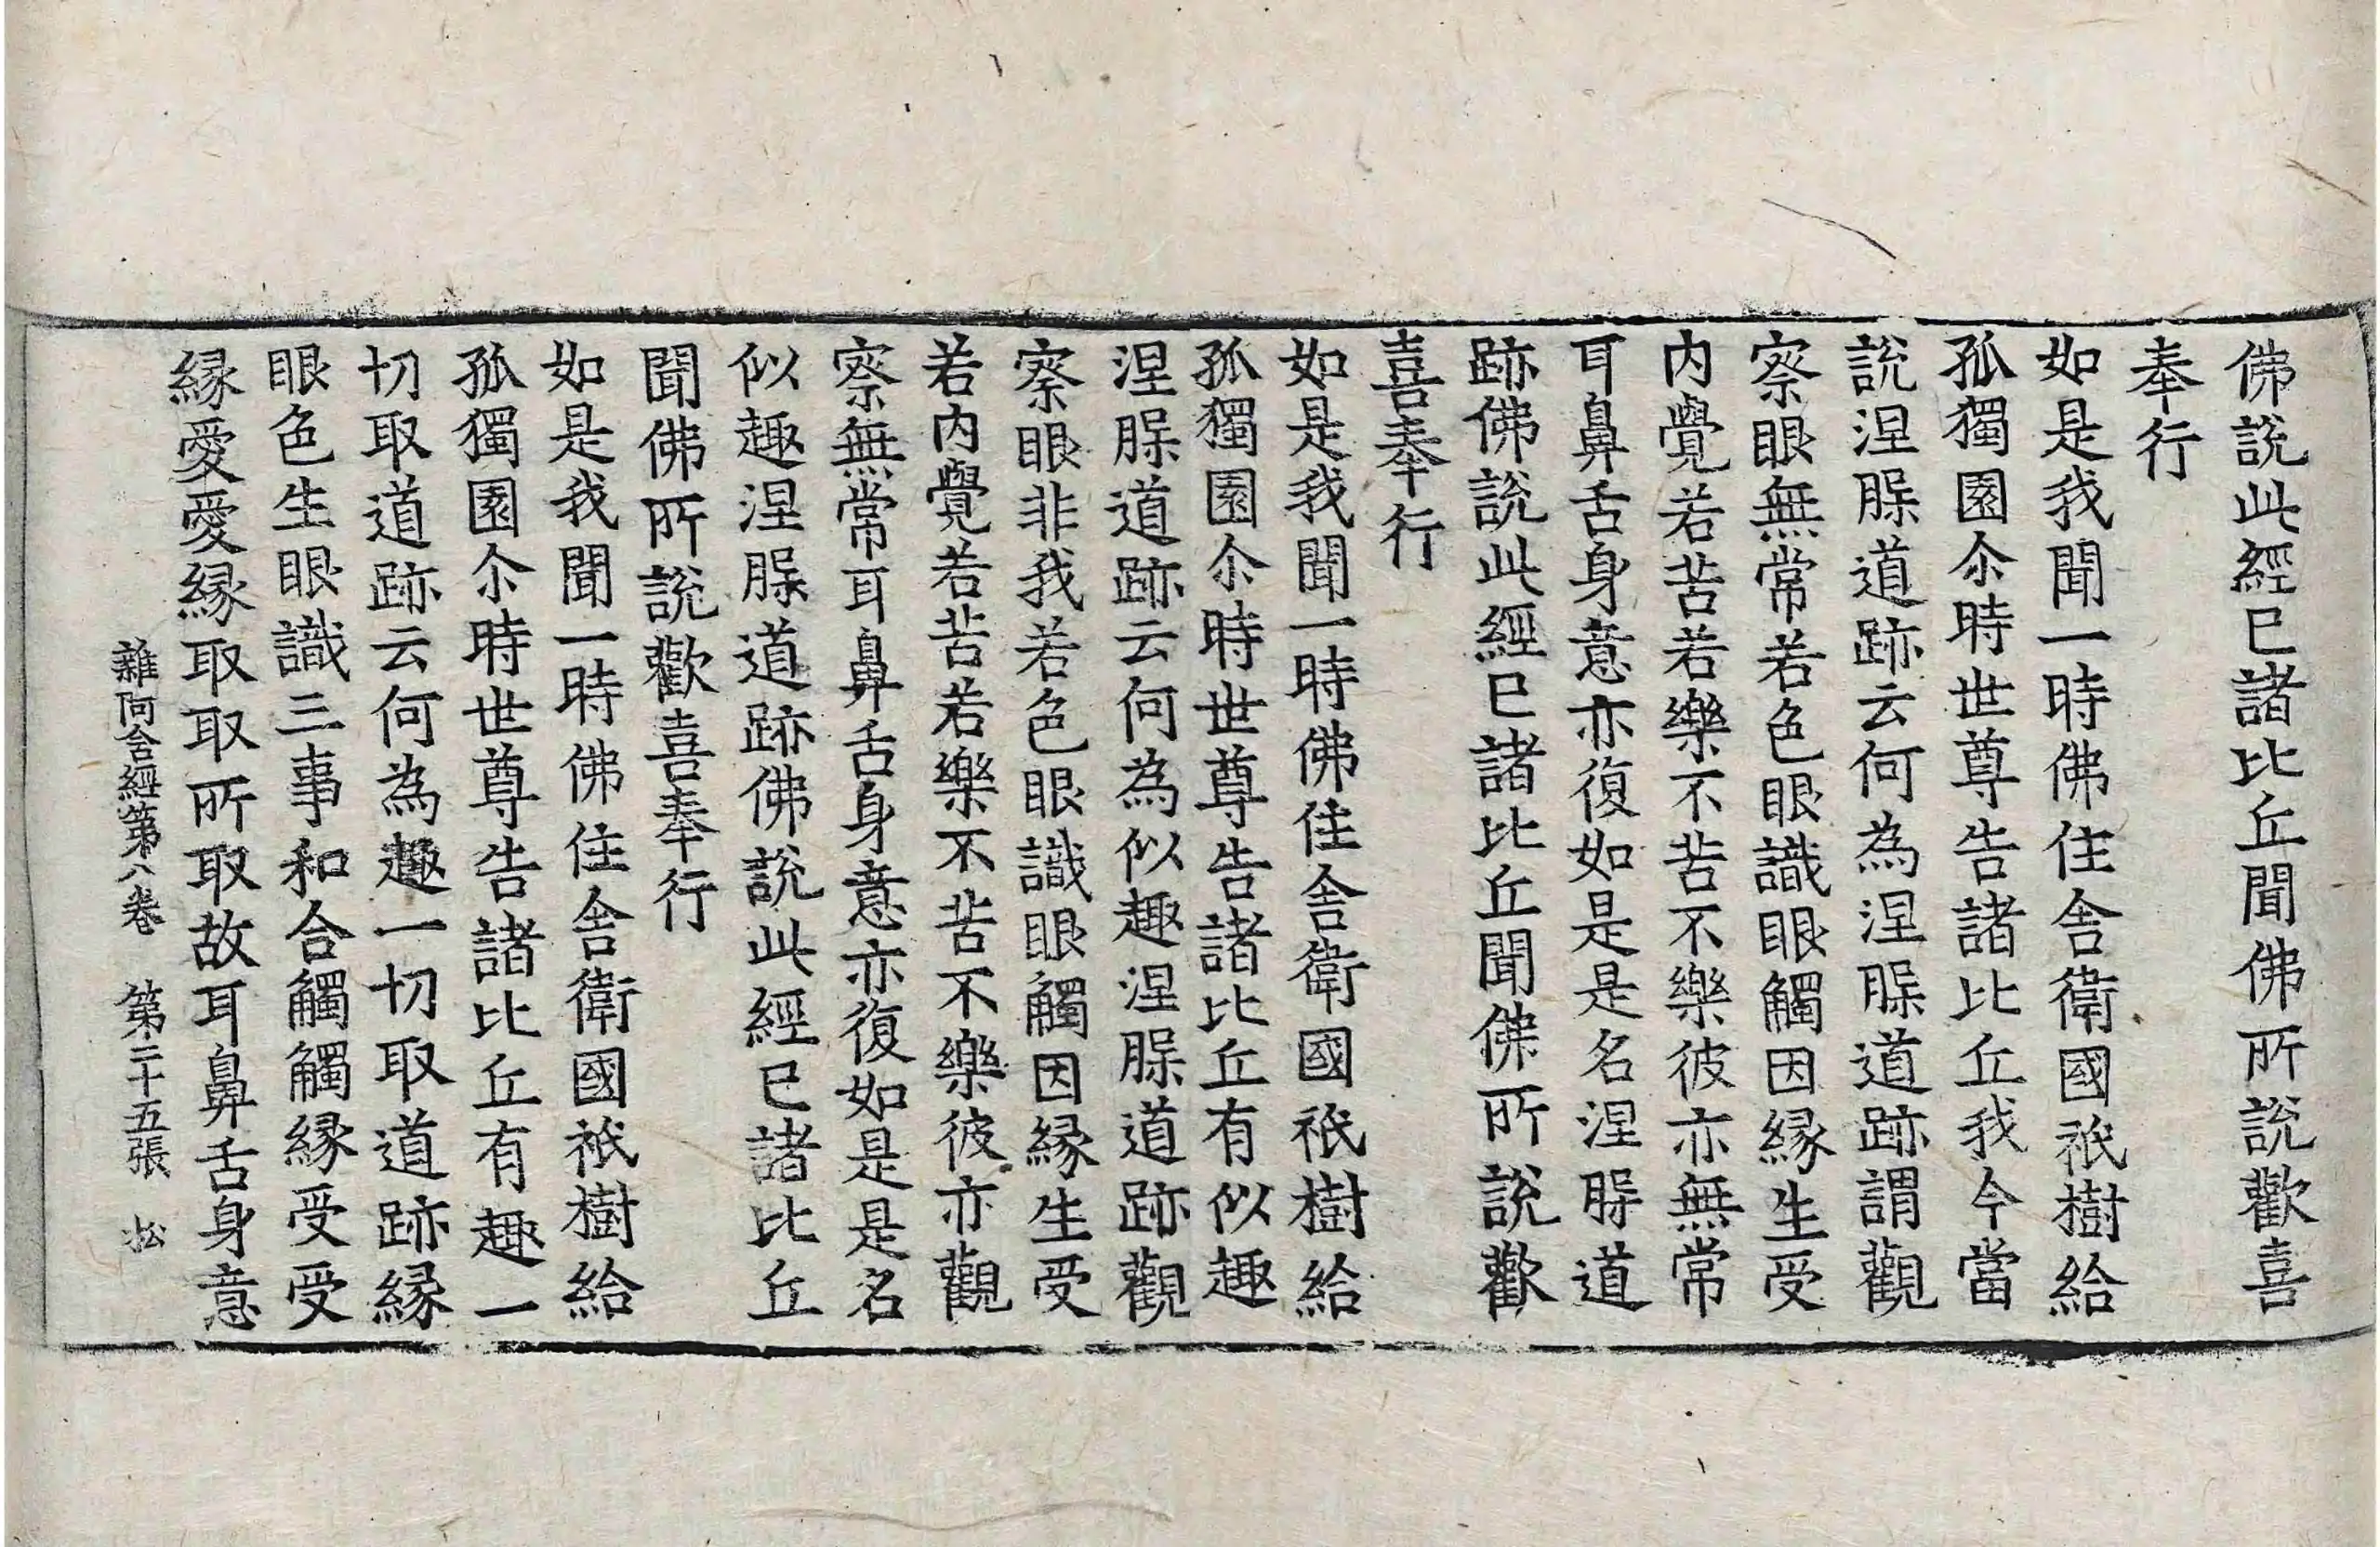 佛說此經已諸比丘聞佛所說歡喜
奉行
如是我聞一時佛住舍衛國祇樹給
孤獨園尒時世尊告諸比丘我今當
說涅槃道跡云何為涅槃道跡謂觀
察眼無常若色眼識眼觸因緣生受
内覺若苦若樂不苦不樂彼亦無常
耳鼻舌身意亦復如是是名涅槃道
跡佛說此經已諸比丘聞佛所說歡
喜奉行
如是我聞一時佛住舍衛國祇樹給
孤獨園尒時世尊告諸比丘有似趣
涅槃道跡云何為似趣涅槃道跡觀
察眼非我若色眼識眼觸因緣生受
若内覺若苦若樂不苦不樂彼亦觀
察無常耳鼻舌身意亦復如是是名
似趣涅槃道跡佛說此經已諸比丘
聞佛所說歡喜奉行
如是我聞一時佛住舍衛國祇樹給
孤獨園尒時世尊告諸比丘有趣一
切取道跡云何為趣一切取道跡緣
眼色生眼識三事和合觸觸緣受受
緣愛愛緣取取所取故耳鼻舌身意
雜阿含經第八卷　第二十五張　松